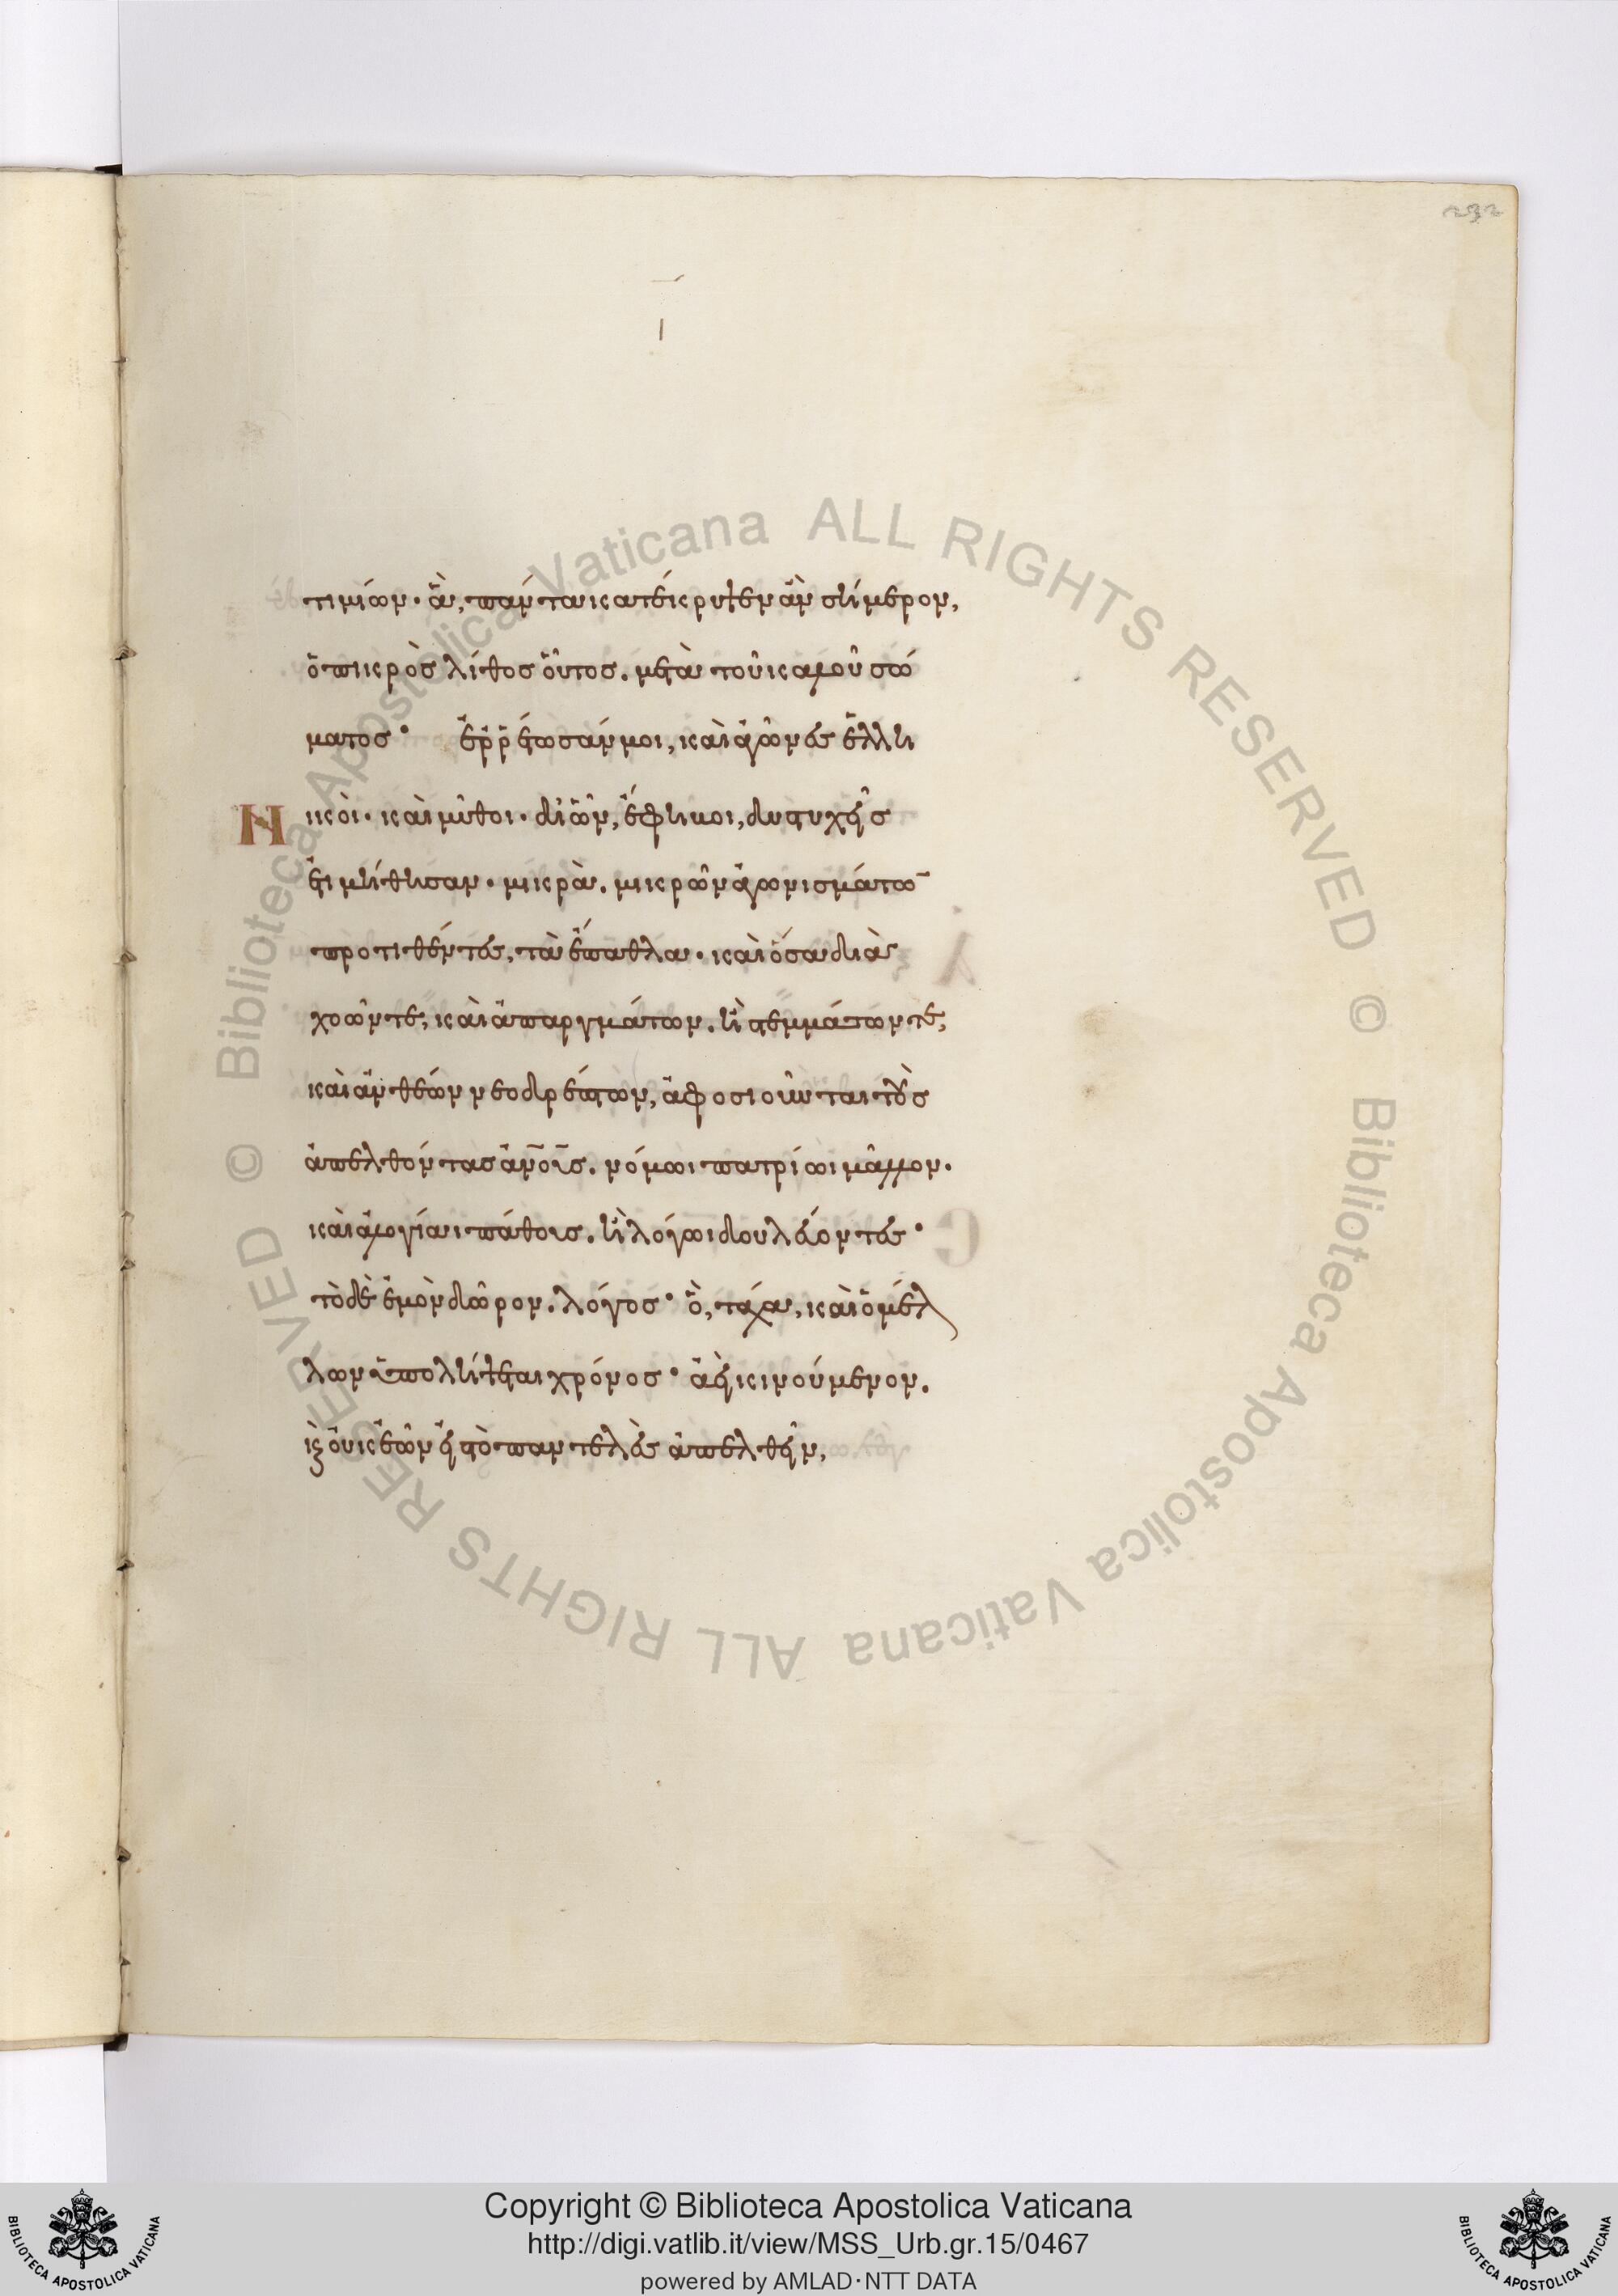 232
τιμίων· ἃ, πάντα κατέκρυψεν ἂν σήμερον,
ὁ πικρὸς λίθος οὗτος. μετὰ τοῦ καλοῦ σώ
ματος· ἐρρέτωσάν μοι, καὶ ἀγῶνες ἑλλη
Νικοὶ· καὶ μῦθοι· δι' ὧν, ἔφηβοι, δυστυχεῖς
ἐτιμήθησαν· μικρὰ. μικρῶν ἀγωνισμάτω̄
προτιθέντες, τὰ ἔπαθλα· καὶ ὅσα διὰ
χοῶν τε, καὶ ἀπαργμάτων. ἢ στεμμάτων τέ,
καὶ ἀνθέων νεοδρέπτων, ἀφοσιοῦνται τοὺς
ἀπελθόντας ἀν̄οις. νόμωι πατρίωι μᾶλλον.
καὶ ἀλογίαι πάθους. ἢ λόγωι δουλεύοντες·
τὸ δὲ ἐμὸν δῶρον. λόγος· ὃ, τάχα, καὶ ὁ μέλ
λων ὑπολήψεται χρόνος· ἀεὶ κινούμενον.
καὶ οὐκ ἐῶν εἰς τὸ παντελὲς ἀπελθεῖν,
Copyright © Biblioteca Apostolica Vaticana
http://digi.vatlib.it/view/MSS_Urb.gr.15/0467
powered by AMLAD·NTT DATA
BIBLIOTECA APOSTOLICA VATICANA
BIBLIOTECA APOSTOLICA VATICANA
© Biblioteca Apostolica Vaticana ALL RIGHTS RESERVED
© Biblioteca Apostolica Vaticana ALL RIGHTS RESERVED